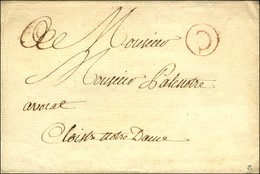 A Monsieur
C
Monsieur Patenotre
avocat
Cloistre notre Dame